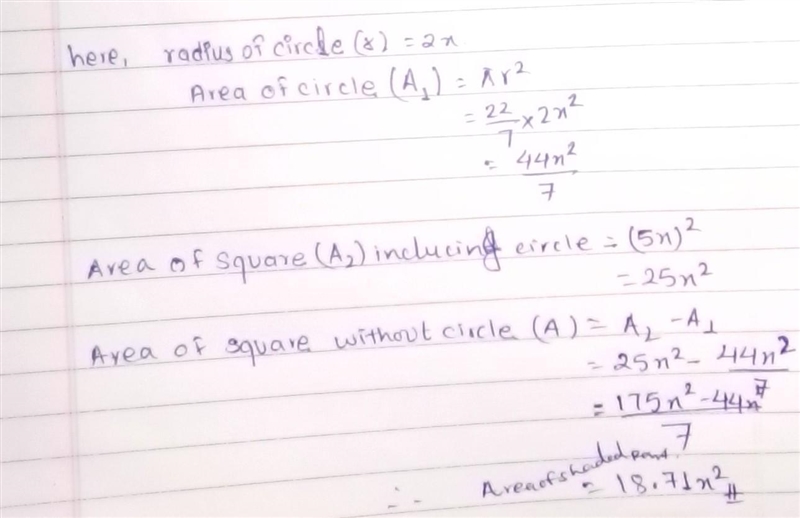 here, radius of circle (r) = 2x
Area of circle (A₁) = πr²
= 22/7 × 2x²
= 44x²/7
Area of Square (A₂) inclucing circle = (5x)²
= 25x²
Area of square without circle (A) = A₂ - A₁
= 25x² - 44x²/7
= 175x² - 44x²/7
∴ Area of shaded
= 18.71x² #